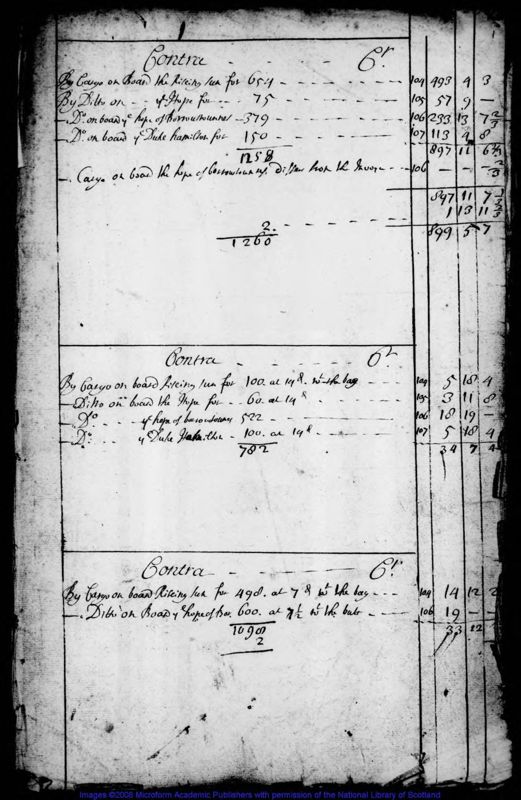 Contra Cr
By Cargo on Board the Riseing sun for 654 104 493 4 3
By Ditto on ye Hope for 75 105 57 9 —
Do on board ye hope of Borrowstounes 379 106 233 13 7 2/3
Do on board ye Duke hamilton for 150 107 113 4 8
1258 897 11 6 2/3
Cargo on board the hope of borrowstouns differs from the 106 — — 2/3
897 11 7 1/3
2 1 13 11 2/3
1260 899 5 7
Contra Cr
By Cargo on board Riseing sun for 100 at 14d wt the bag 104 5 18 4
Ditto on board the Hope for 60 at 14d 105 3 11 8
Do ye hope of borrowstounes 522 106 18 19 —
Do ye Duke Hamilton 100 at 14d 107 5 18 4
782 34 7 4
Contra Cr
By Cargo on board Riseing sun for 498 at 7d wt the bag 104 14 12 2
Ditto on Board ye hope of Bor 600 at 7½ wt the 106 19 —
1098 33 12
2
Images ©2008 Microform Academic Publishers with permission of the National Library of Scotland